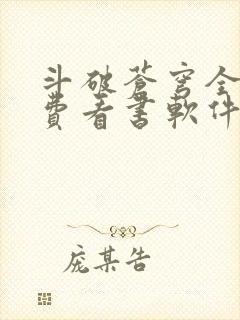 斗破苍穹全
費看書軟件
庞某告